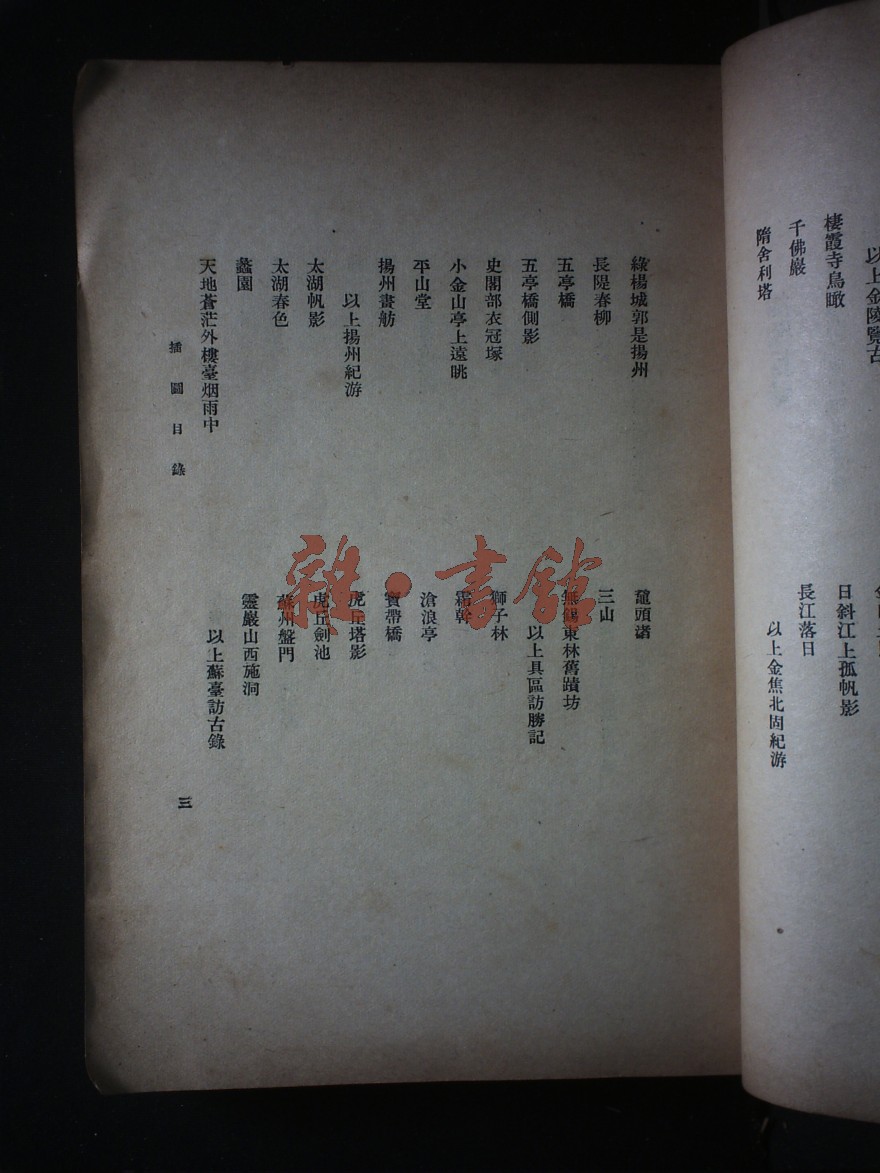 以上金陵覽古
棲霞寺鳥瞰
千佛巖
隋舍利塔
日斜江上孤帆影
長江落日
以上金焦北固紀游
綠楊城郭是揚州
長隄春柳
五亭橋
五亭橋側影
史閣部衣冠塚
小金山亭上遠眺
平山堂
揚州畫舫
以上揚州紀游
太湖帆影
太湖春色
蠡園
天地蒼茫外樓臺烟雨中
黿頭渚
三山
無錫東林舊蹟坊
以上具區訪勝記
獅子林
霜幹
滄浪亭
寶帶橋
虎丘塔影
虎丘劍池
蘇州盤門
靈巖山西施洞
以上蘇臺訪古錄
插圖目錄
三
雜·書館